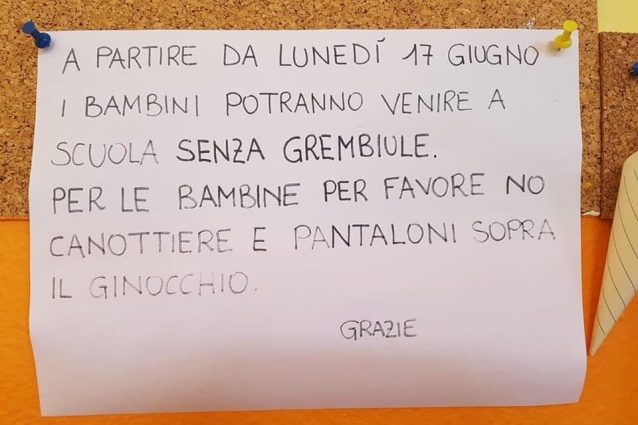 A PARTIRE DA LUNEDÍ 17 GIUGNO
I BAMBINI POTRANNO VENIRE A
SCUOLA SENZA GREMBIULE.
PER LE BAMBINE PER FAVORE NO
CANOTTIERE E PANTALONI SOPRA
IL GINOCCHIO.
GRAZIE